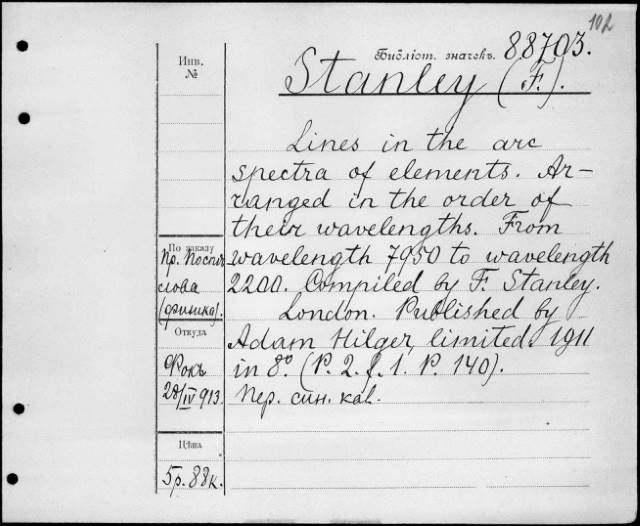 102
Библіот. значекъ. 88703.
Инв.
№
Stanley (F.).
Lines in the arc
spectra of elements. Ar-
ranged in the order of
their wavelengths. From
wavelength 7950 to wavelength
2200. Compiled by F. Stanley.
London. Published by
Adam Hilger, limited. 1911
in 8º. (P. 2. f. 1. P. 140).
Пер. син. кал.
По заказу
Пр. Поспе-
лова
(физика).
Откуда
Фокъ
28/IV 913.
Цѣна
5р. 88к.